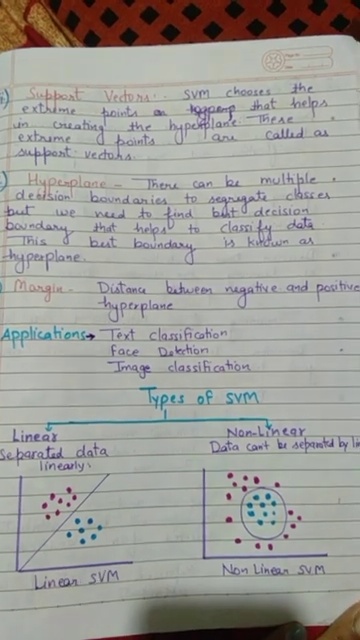 Support Vectors:- SVM chooses the
extreme points that helps
in creating the hyperplane. These
extreme points are called as
support vectors.
Hyperplane - There can be multiple
decision boundaries to segregate classes
but we need to find best decision
boundary that helps to classify data
This best boundary is known as
hyperplane.
Margin - Distance between negative and positive
hyperplane
Applications → Text classification
Face Detection
Image classification
Types of SVM
Linear
Separated data
linearly.
Non-Linear
Data can't be separated by
Linear SVM
Non Linear SVM